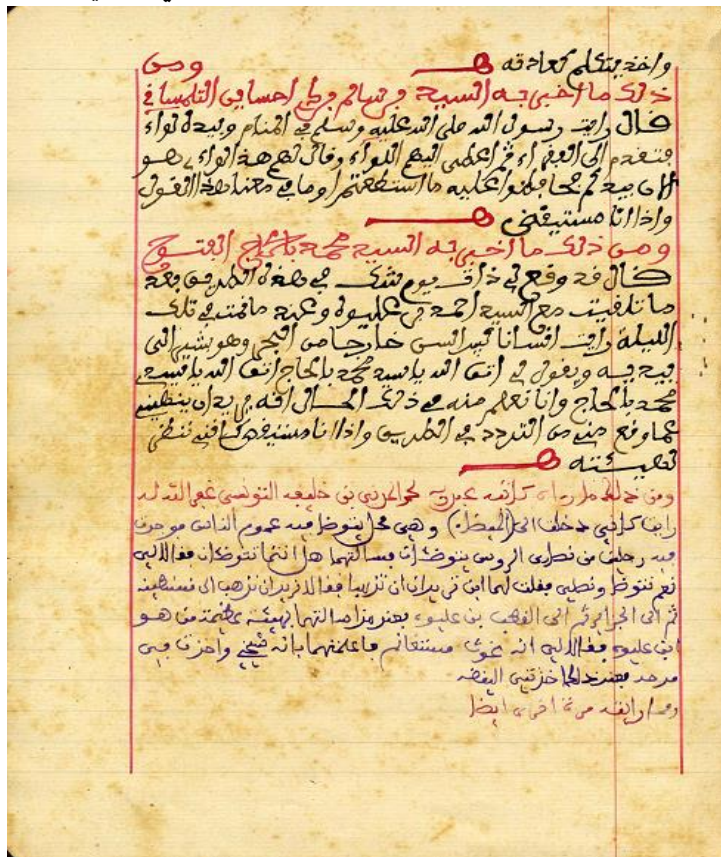 واخذ يتكلم كعادته ومن
ذلك ما اخبرني به السيد بن سالم بن احساين التلمساني
قال رايت رسول الله صلى الله عليه وسلم في المنام وبيده لواء
فتقدم الى الفقراء ثم اعطى اليهم اللواء وقال لهم هذا لواءي هو
الآن بيدكم فحافظوا عليه ما استطعتم او ما في معنا هذا القول
واذا انا مستيقض
ومن ذلك ما اخبرني به السيد محمد بالحاج
قال قد وقع لي ذات يوم شك في هذه الطريق بعد
ما تلاقيت مع السيد احمد بن عليوة وعنده ما نمت في تلك
الليلة رايت انسانا كبير السن خارجا من البحر وهو يشير الي
بيديه ويقول لي اتق الله ياسيد محمد بالحاج اتق الله ياسيد
محمد بالحاج وانا نفهم منه في ذلك الحال انه يريد ان ينهيني
عما وقع مني من التردد في الطريق واذا انا مستيقض كانني ننظر
لهيئته
ومن ذلك ما رءاه كاتبه بن خليفة التونسي غفر الله له
رايت كانني دخلت الى (الميضاة) وهي محل يتوضا فيه عموم الناس فوجدت
فيه رجلين من نصارى الروس يتوضئان فسالتهما هل انتما تتوضئان فقالا لي
نعم نتوضا ونصلي فقلت لهما اين تريدان ان تذهبا فقالا نريد ان نذهب الى قسنطينة
ثم الى الجزائر ثم الى القطب بن عليوة فعند ما سالتهما بهيئة من هو
ابن عليوة فقالا لي انه غوث مستغانم فاعلمتهما بانه شيخي واخذت في
فعند ذلك اخذتني اليقضة
ومما رايته مرة اخرى ايضا